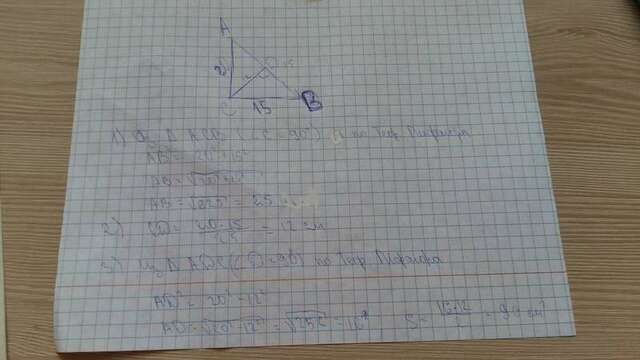 A
20
C
15
B
1) Из Δ ACB (∠C = 90°) по Теор Пифагора
AB² = 20² + 15²
AB = √20² + 15²
AB = √625 = 25
2) CD = 20 · 15 / 25 = 12 см
3) Из Δ ADC (∠D = 90°) по Теор Пифагора
AD² = 20² - 12²
AD = √20² - 12² = √256 = 16
S = 16 · 12 / 2 = 96 см²